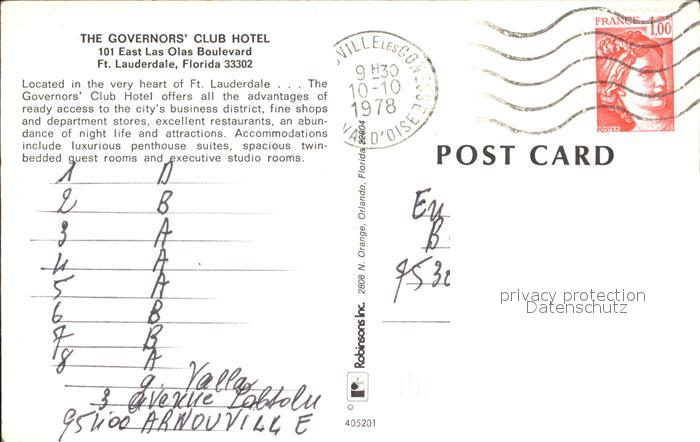 THE GOVERNORS' CLUB HOTEL
101 East Las Olas Boulevard
Ft. Lauderdale, Florida 33302
Located in the very heart of Ft. Lauderdale . . . The
Governors' Club Hotel offers all the advantages of
ready access to the city's business district, fine shops
and department stores, excellent restaurants, an abun-
dance of night life and attractions. Accommodations
include luxurious penthouse suites, spacious twin-
bedded guest rooms and executive studio rooms.
1 D
2 B
3 A
4 A
5 A
6 B
7 B
8 A
g. Valla
3 avenue
95400 ARNOUVILLE
2808 N. Orange, Orlando, Florida 32804
Robinsons Inc.
405201
VILLE LES GONESSE
9H30
10-10
1978
VAL D'OISE
FRANCE 1,00
POSTES
POST CARD
B
privacy protection
Datenschutz